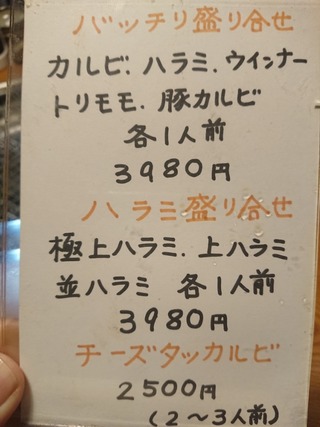 バッチリ盛り合せ
カルビ.ハラミ.ウインナー
トリモモ.豚カルビ
各1人前
3980円
ハラミ盛り合せ
極上ハラミ.上ハラミ
並ハラミ 各1人前
3980円
チーズタッカルビ
2500円
(2〜3人前)